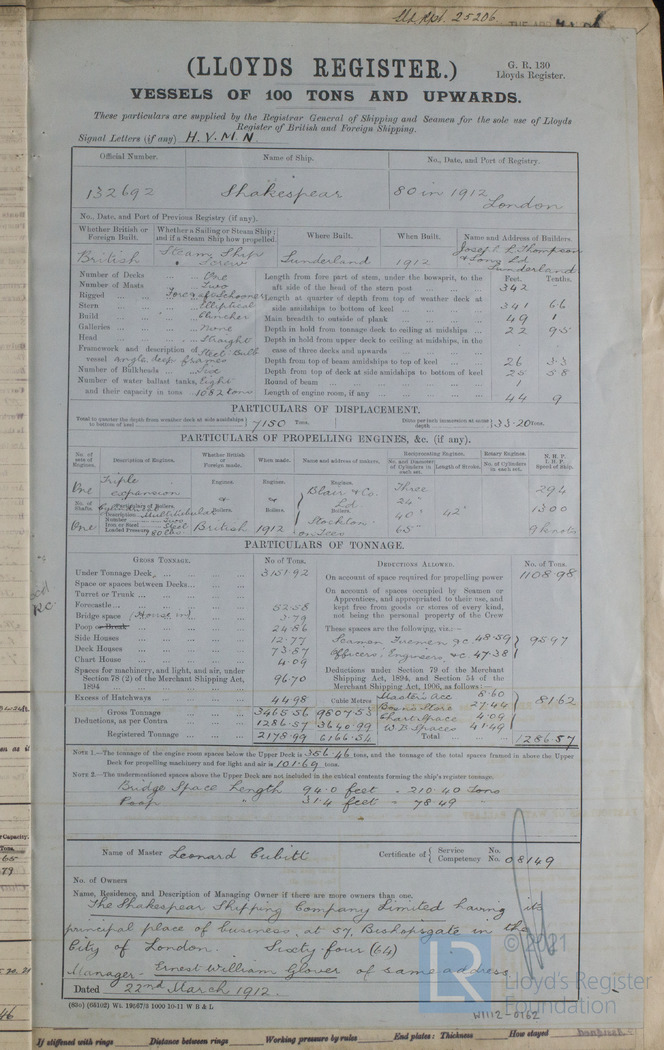 (LLOYDS REGISTER.)
G. R. 130
Lloyds Register.
VESSELS OF 100 TONS AND UPWARDS.
These particulars are supplied by the Registrar General of Shipping and Seamen for the sole use of Lloyds
Register of British and Foreign Shipping.
Signal Letters (if any) H. V. M. N.
Official Number. Name of Ship. No., Date, and Port of Registry.
132692 Shakespear 80 in 1912 London
No., Date, and Port of Previous Registry (if any).
Whether British or Foreign Built. Whether a Sailing or Steam Ship; and if a Steam Ship how propelled. Where Built. When Built. Name and Address of Builders.
British Steam Ship Screw Sunderland 1912 Josef L. Thompson & Sons Ld Sunderland
Feet. Tenths.
Number of Decks One
Number of Masts Two
Rigged Fore & aft Schooner
Stern Elliptical
Build Clincher
Galleries None
Head Straight
Framework and description of vessel Steel Bulb angle deep frames
Number of Bulkheads Six
Number of water ballast tanks, Eight
and their capacity in tons 1082 tons
Length from fore part of stem, under the bowsprit, to the aft side of the head of the stern post 342
Length at quarter of depth from top of weather deck at side amidships to bottom of keel 341 66
Main breadth to outside of plank 49 1
Depth in hold from tonnage deck to ceiling at midships 22 95
Depth in hold from upper deck to ceiling at midships, in the case of three decks and upwards
Depth from top of beam amidships to top of keel 26 33
Depth from top of deck at side amidships to bottom of keel 25 58
Round of beam 1
Length of engine room, if any 44 9
PARTICULARS OF DISPLACEMENT.
Total to quarter the depth from weather deck at side amidships to bottom of keel 7150 Tons. Ditto per inch immersion at same depth 33.20 Tons.
PARTICULARS OF PROPELLING ENGINES, &c. (if any).
No. of sets of Engines. Description of Engines. Whether British or Foreign made. When made. Name and address of makers. Reciprocating Engines. No. and Diameter of Cylinders in each set. Length of Stroke. Rotary Engines. No. of Cylinders in each set. N. H. P. I. H. P. Speed of Ship.
One Triple expansion Engines. Engines. Engines. Three 294
No. of Shafts. Particulars of Boilers. Boilers. Boilers. Blair & Co. Ld Boilers. 24" 40" 65" 42" 1300
Description Multitubular
Number Two
Iron or Steel Steel
Loaded Pressure 180 lbs
One British 1912 Stockton on Tees 9 knots
PARTICULARS OF TONNAGE.
GROSS TONNAGE. No of Tons. DEDUCTIONS ALLOWED. No. of Tons.
Under Tonnage Deck 3151.92
Space or spaces between Decks
Turret or Trunk
Forecastle 52.58
Bridge space 3.79
Poop or Break 24.86
Side Houses 12.77
Deck Houses 73.87
Chart House 4.09
Spaces for machinery, and light, and air, under Section 78 (2) of the Merchant Shipping Act, 1894 96.70
Excess of Hatchways 44.98 Cubic Metres
Gross Tonnage 3465.56 9807.53
Deductions, as per Contra 1286.57 3640.99
Registered Tonnage 2178.99 6166.54
On account of space required for propelling power 1108.98
On account of spaces occupied by Seamen or Apprentices, and appropriated to their use, and kept free from goods or stores of every kind, not being the personal property of the Crew
These spaces are the following, viz.:—
Seamen Firemen &c 48.59
Officers, Engineers, &c 47.38 95.97
Deductions under Section 79 of the Merchant Shipping Act, 1894, and Section 54 of the Merchant Shipping Act, 1906, as follows:—
Master's acc 8.60
Bosn's Store 27.44
Chart Space 4.09
W.B. Spaces 41.49 81.62
Total 1286.57
NOTE 1.—The tonnage of the engine room spaces below the Upper Deck is 356.46 tons, and the tonnage of the total spaces framed in above the Upper
Deck for propelling machinery and for light and air is 101.69 tons.
NOTE 2.—The undermentioned spaces above the Upper Deck are not included in the cubical contents forming the ship's register tonnage:
Bridge Space Length 94.0 feet = 210.40 Tons
Poop " 31.4 feet = 78.49 "
Name of Master Leonard Cubitt Certificate of Service No. Competency No. 08149
No. of Owners
Name, Residence, and Description of Managing Owner if there are more owners than one.
The Shakespear Shipping Company Limited having its
principal place of business at 57, Bishopsgate in the
City of London. Sixty four (64)
Manager - Ernest William Glover of same address
Dated 22nd March 1912.
(83o) (65102) Wt. 19607/3 1000 10-11 W B & L
W1112-0162
LR
© 2021
Lloyd's Register
Foundation
If stiffened with rings Distance between rings Working pressure by rules End plates: Thickness How stayed